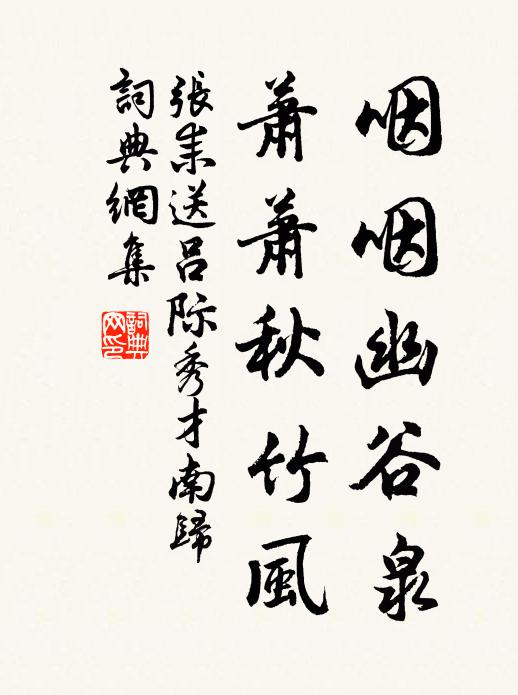 咽咽幽谷泉
蕭蕭秋竹風
張耒送呂際秀才南歸
詞典網集
詞典网印